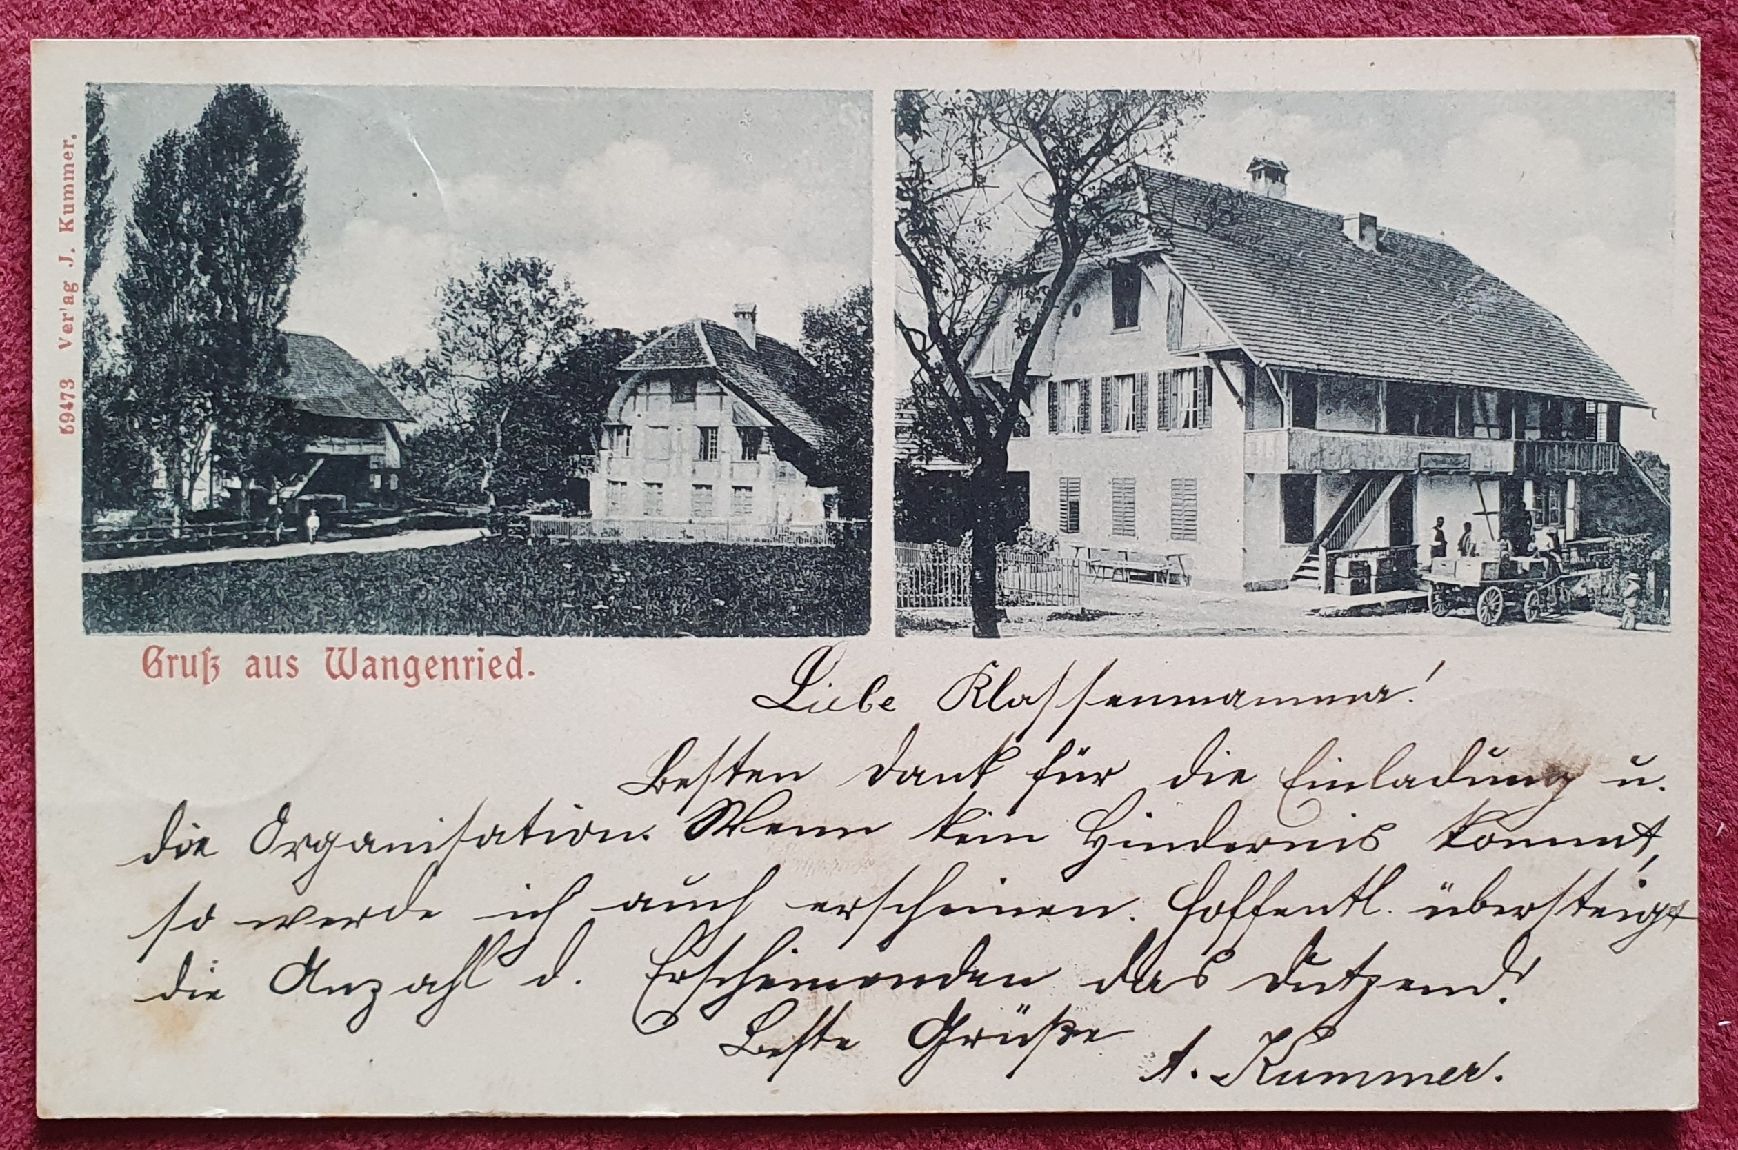 59473 Verlag J. Kummer.
Gruß aus Wangenried.
Liebe Klassenmamma!
Besten Dank für die Einladung u.
die Organisation. Wenn kein Hindernis kommt,
so werde ich auch erscheinen. Hoffentl. übersteigt
die Anzahl d. Erscheinenden das Dutzend!
Beste Grüße
A. Kummer.